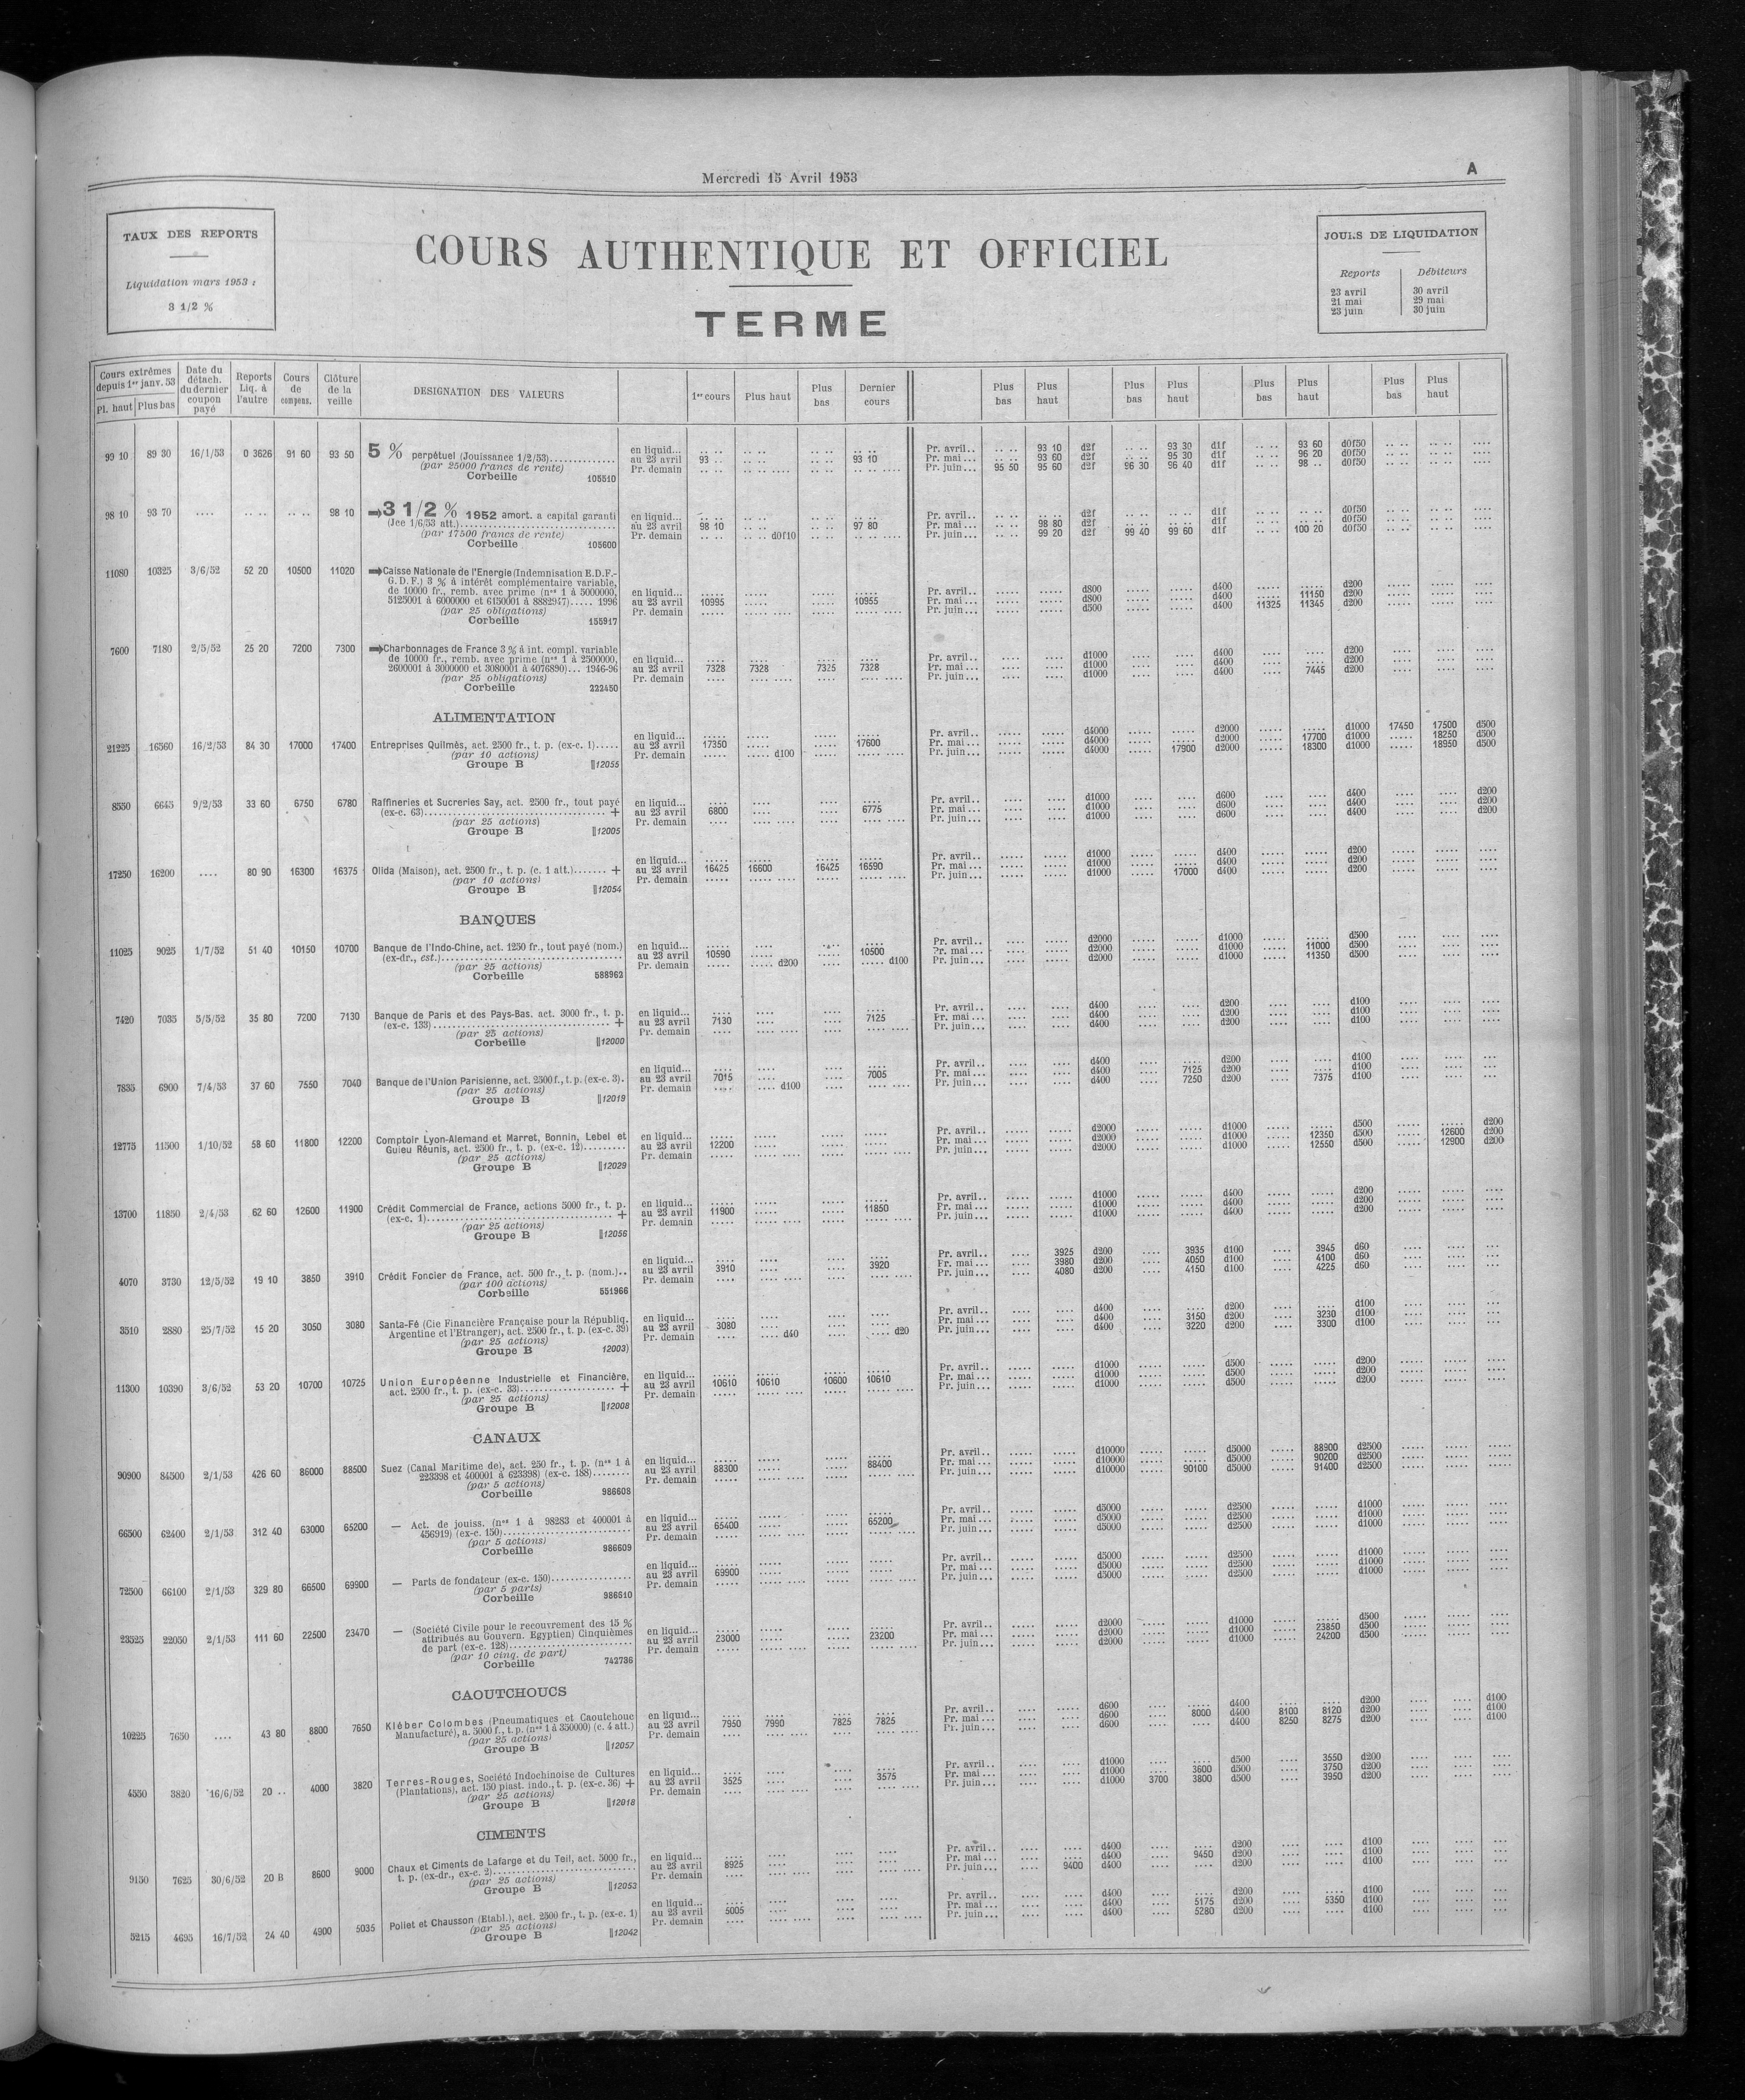 Mercredi 15 Avril 1953
A
TAUX DES REPORTS
Liquidation mars 1953 :
3 1/2 %
COURS AUTHENTIQUE ET OFFICIEL
TERME
JOURS DE LIQUIDATION
Reports Débiteurs
23 avril 30 avril
21 mai 29 mai
23 juin 30 juin
Cours extrêmes depuis 1er janv. 53 Pl. haut Plus bas
Date du détach. du dernier coupon payé
Reports Liq. à l'autre
Cours de compens.
Clôture de la veille
DESIGNATION DES VALEURS
1er cours Plus haut Plus bas Dernier cours
Plus bas Plus haut Plus bas Plus haut Plus bas Plus haut Plus bas Plus haut
99 10 89 30 16/1/53 0 3626 91 60 93 50 5 % perpétuel (Jouissance 1/2/53)
(par 25000 francs de rente)
Corbeille 105510
en liquid... Pr. avril.. 93 10 d2f 93 30 d1f 93 60 d0f50
au 23 avril 93 .. 93 10 Pr. mai... 93 60 d2f 95 30 d1f 96 20 d0f50
Pr. demain Pr. juin... 95 50 95 60 d2f 96 30 96 40 d1f 98 .. d0f50
98 10 93 70 .... 98 10 3 1/2 % 1952 amort. a capital garanti
(Jce 1/6/53 att.)
(par 17500 francs de rente)
Corbeille 105600
en liquid... Pr. avril.. d2f d1f d0f50
au 23 avril 98 10 97 80 Pr. mai... 98 80 d2f d1f d0f50
Pr. demain d0f10 Pr. juin... 99 20 d2f 99 40 99 60 d1f 100 20 d0f50
11080 10325 3/6/52 52 20 10500 11020 Caisse Nationale de l'Energie (Indemnisation E.D.F.-
G.D.F.) 3 % à intérêt complémentaire variable,
de 10000 fr., remb. avec prime (nos 1 à 5000000,
5125001 à 6000000 et 6150001 à 8882947)..... 1996
(par 25 obligations)
Corbeille 155917
en liquid... Pr. avril.. d800 d400 d200
au 23 avril 10995 10955 Pr. mai... d800 d400 11150 d200
Pr. demain Pr. juin... d500 d400 11325 11345 d200
7600 7180 2/5/52 25 20 7200 7300 Charbonnages de France 3 % à int. compl. variable
de 10000 fr., remb. avec prime (nos 1 à 2500000,
2600001 à 3000000 et 3080001 à 4076890)... 1946-96
(par 25 obligations)
Corbeille 222450
en liquid... Pr. avril.. d1000 d400 d200
au 23 avril 7328 7328 7325 7328 Pr. mai... d1000 d400 d200
Pr. demain Pr. juin... d1000 d400 7445 d200
ALIMENTATION
21225 16560 16/2/53 84 30 17000 17400 Entreprises Quilmès, act. 2500 fr., t. p. (ex-c. 1)
(par 10 actions)
Groupe B 12055
en liquid... Pr. avril.. d4000 d2000 d1000 17450 17500 d500
au 23 avril 17350 17600 Pr. mai... d4000 d2000 17700 d1000 18250 d500
Pr. demain d100 Pr. juin... d4000 17900 d2000 18300 d1000 18950 d500
8550 6645 9/2/53 33 60 6750 6780 Raffineries et Sucreries Say, act. 2500 fr., tout payé
(ex-c. 63) +
(par 25 actions)
Groupe B 12005
en liquid... Pr. avril.. d1000 d600 d400 d200
au 23 avril 6800 6775 Pr. mai... d1000 d600 d400 d200
Pr. demain Pr. juin... d1000 d600 d400 d200
17250 16200 .... 80 90 16300 16375 Olida (Maison), act. 2500 fr., t. p. (c. 1 att.) +
(par 10 actions)
Groupe B 12054
en liquid... Pr. avril.. d1000 d400 d200
au 23 avril 16425 16600 16425 16590 Pr. mai... d1000 d400 d200
Pr. demain Pr. juin... d1000 17000 d400 d200
BANQUES
11025 9025 1/7/52 51 40 10150 10700 Banque de l'Indo-Chine, act. 1250 fr., tout payé (nom.)
(ex-dr., est.)
(par 25 actions)
Corbeille 588962
en liquid... Pr. avril.. d2000 d1000 d500
au 23 avril 10590 10500 Pr. mai... d2000 d1000 11000 d500
Pr. demain d200 d100 Pr. juin... d2000 d1000 11350 d500
7420 7035 5/5/52 35 80 7200 7130 Banque de Paris et des Pays-Bas. act. 3000 fr., t. p.
(ex-c. 133) +
(par 25 actions)
Corbeille 12000
en liquid... Pr. avril.. d400 d200 d100
au 23 avril 7130 7125 Pr. mai... d400 d200 d100
Pr. demain Pr. juin... d400 d200 d100
7835 6900 7/4/53 37 60 7550 7040 Banque de l'Union Parisienne, act. 2500 f., t. p. (ex-c. 3).
(par 25 actions)
Groupe B 12019
en liquid... Pr. avril.. d400 d200 d100
au 23 avril 7015 7005 Pr. mai... d400 7125 d200 d100
Pr. demain d100 Pr. juin... d400 7250 d200 7375 d100
12775 11500 1/10/52 58 60 11800 12200 Comptoir Lyon-Alemand et Marret, Bonnin, Lebel et
Guieu Réunis, act. 2500 fr., t. p. (ex-c. 12)
(par 25 actions)
Groupe B 12029
en liquid... Pr. avril.. d2000 d1000 d500 d200
au 23 avril 12200 Pr. mai... d2000 d1000 12350 d500 12600 d200
Pr. demain Pr. juin... d2000 d1000 12550 d500 12900 d200
13700 11850 2/4/53 62 60 12600 11900 Crédit Commercial de France, actions 5000 fr., t. p.
(ex-c. 1) +
(par 25 actions)
Groupe B 12056
en liquid... Pr. avril.. d1000 d400 d200
au 23 avril 11900 11850 Pr. mai... d1000 d400 d200
Pr. demain Pr. juin... d1000 d400 d200
4070 3730 12/5/52 19 10 3850 3910 Crédit Foncier de France, act. 500 fr., t. p. (nom.)..
(par 100 actions)
Corbeille 551966
en liquid... Pr. avril.. 3925 d200 3935 d100 3945 d60
au 23 avril 3910 3920 Pr. mai... 3980 d200 4050 d100 4100 d60
Pr. demain Pr. juin... 4080 d200 4150 d100 4225 d60
3510 2880 25/7/52 15 20 3050 3080 Santa-Fé (Cie Financière Française pour la Républiq.
Argentine et l'Etranger), act. 2500 fr., t. p. (ex-c. 39)
(par 25 actions)
Groupe B 12003)
en liquid... Pr. avril.. d400 d200 d100
au 23 avril 3080 Pr. mai... d400 3150 d200 3230 d100
Pr. demain d40 d20 Pr. juin... d400 3220 d200 3300 d100
11300 10390 3/6/52 53 20 10700 10725 Union Européenne Industrielle et Financière,
act. 2500 fr., t. p. (ex-c. 33) +
(par 25 actions)
Groupe B 12008
en liquid... Pr. avril.. d1000 d500 d200
au 23 avril 10610 10610 10600 10610 Pr. mai... d1000 d500 d200
Pr. demain Pr. juin... d1000 d500 d200
CANAUX
90900 84500 2/1/53 426 60 86000 88500 Suez (Canal Maritime de), act. 250 fr., t. p. (nos 1 à
223398 et 400001 à 623398) (ex-c. 188)
(par 5 actions)
Corbeille 986608
en liquid... Pr. avril.. d10000 d5000 88900 d2500
au 23 avril 88300 88400 Pr. mai... d10000 d5000 90200 d2500
Pr. demain Pr. juin... d10000 90100 d5000 91400 d2500
66500 62400 2/1/53 312 40 63000 65200 — Act. de jouiss. (nos 1 à 98283 et 400001 à
456919) (ex-c. 150)
(par 5 actions)
Corbeille 986609
en liquid... Pr. avril.. d5000 d2500 d1000
au 23 avril 65400 65200 Pr. mai... d5000 d2500 d1000
Pr. demain Pr. juin... d5000 d2500 d1000
72500 66100 2/1/53 329 80 66500 69900 — Parts de fondateur (ex-c. 150)
(par 5 parts)
Corbeille 986610
en liquid... Pr. avril.. d5000 d2500 d1000
au 23 avril 69900 Pr. mai... d5000 d2500 d1000
Pr. demain Pr. juin... d5000 d2500 d1000
23525 22050 2/1/53 111 60 22500 23470 — (Société Civile pour le recouvrement des 15 %
attribués au Gouvern. Egyptien) Cinquièmes
de part (ex-c. 128)
(par 10 cinq. de part)
Corbeille 743736
en liquid... Pr. avril.. d2000 d1000 d500
au 23 avril 23000 23200 Pr. mai... d2000 d1000 23850 d500
Pr. demain Pr. juin... d2000 d1000 24200 d500
CAOUTCHOUCS
10225 7650 .... 43 80 8800 7650 Kléber Colombes (Pneumatiques et Caoutchouc
Manufacturé), a. 5000 f., t. p. (nos 1 à 350000) (c. 4 att.)
(par 25 actions)
Groupe B 12057
en liquid... Pr. avril.. d600 d400 d200 d100
au 23 avril 7950 7990 7825 7825 Pr. mai... d600 8000 d400 8100 8120 d200 d100
Pr. demain Pr. juin... d600 d400 8250 8275 d200 d100
4550 3820 16/6/52 20 .. 4000 3820 Terres-Rouges, Société Indochinoise de Cultures
(Plantations), act. 150 piast. indo., t. p. (ex-c. 36) +
(par 25 actions)
Groupe B 12018
en liquid... Pr. avril.. d1000 d500 3550 d200
au 23 avril 3525 3575 Pr. mai... d1000 3600 d500 3750 d200
Pr. demain Pr. juin... d1000 3700 3800 d500 3950 d200
CIMENTS
9150 7625 30/6/52 20 B 8600 9000 Chaux et Ciments de Lafarge et du Teil, act. 5000 fr.,
t. p. (ex-dr., ex-c. 2)
(par 25 actions)
Groupe B 12053
en liquid... Pr. avril.. d400 d200 d100
au 23 avril 8925 Pr. mai... d400 9450 d200 d100
Pr. demain Pr. juin... 9400 d400 d200 d100
5215 4695 16/7/52 24 40 4900 5035 Poliet et Chausson (Etabl.), act. 2500 fr., t. p. (ex-c. 1)
(par 25 actions)
Groupe B 12042
en liquid... Pr. avril.. d400 d200 d100
au 23 avril 5005 Pr. mai... d400 5175 d200 5350 d100
Pr. demain Pr. juin... d400 5280 d200 d100